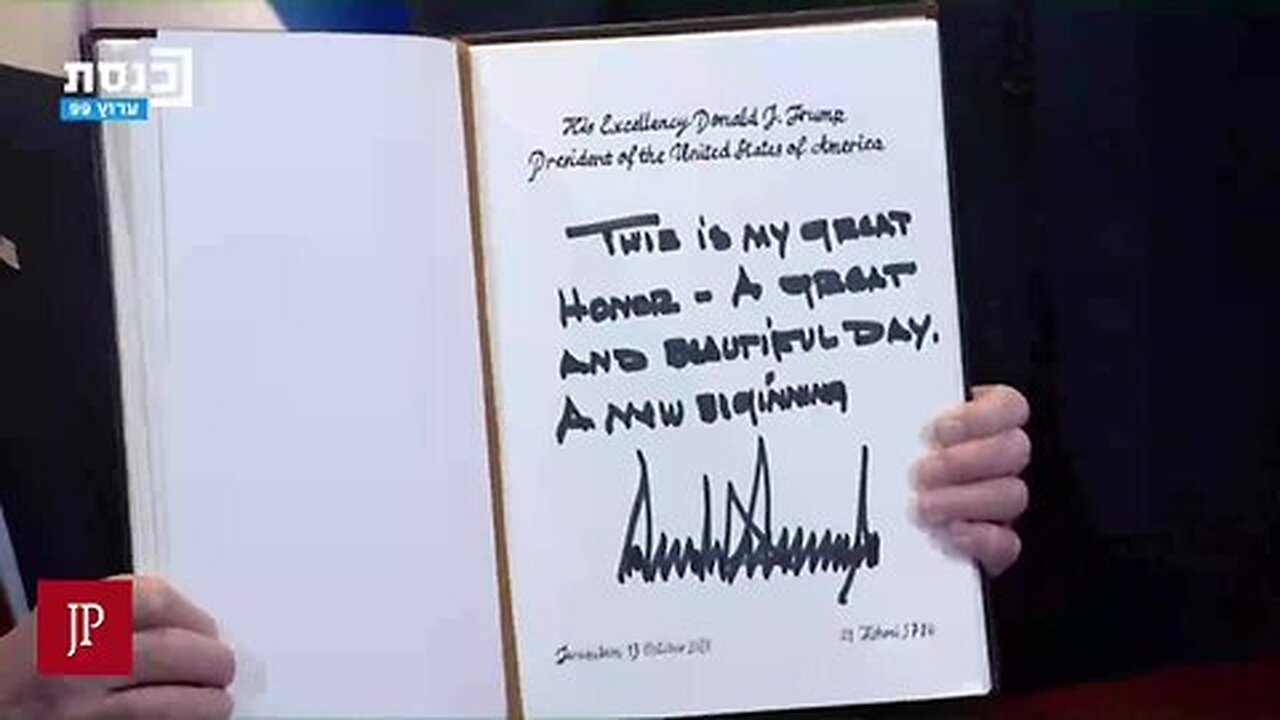 כנסת
ערוץ 99
His Excellency Donald J. Trump
President of the United States of America
THIS IS MY GREAT
HONOR - A GREAT
AND BEAUTIFUL DAY.
A NEW BEGINNING
Jerusalem, 13 October
Tishrei
JP